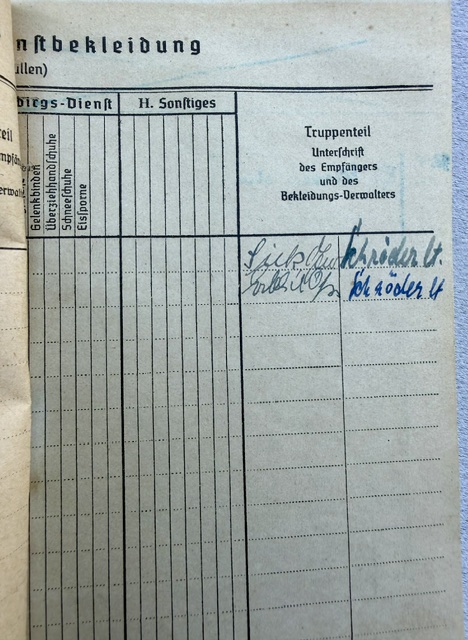 nstbekleidung
üllen)
birgs-Dienst
H. Sonstiges
eil
Gelenkbinden
Überziehhandschuhe
Schneeschuhe
Eissporne
Truppenteil
Unterschrift
des Empfängers
und des
Bekleidungs-Verwalters
Schröder Lt.
Schröder Lt